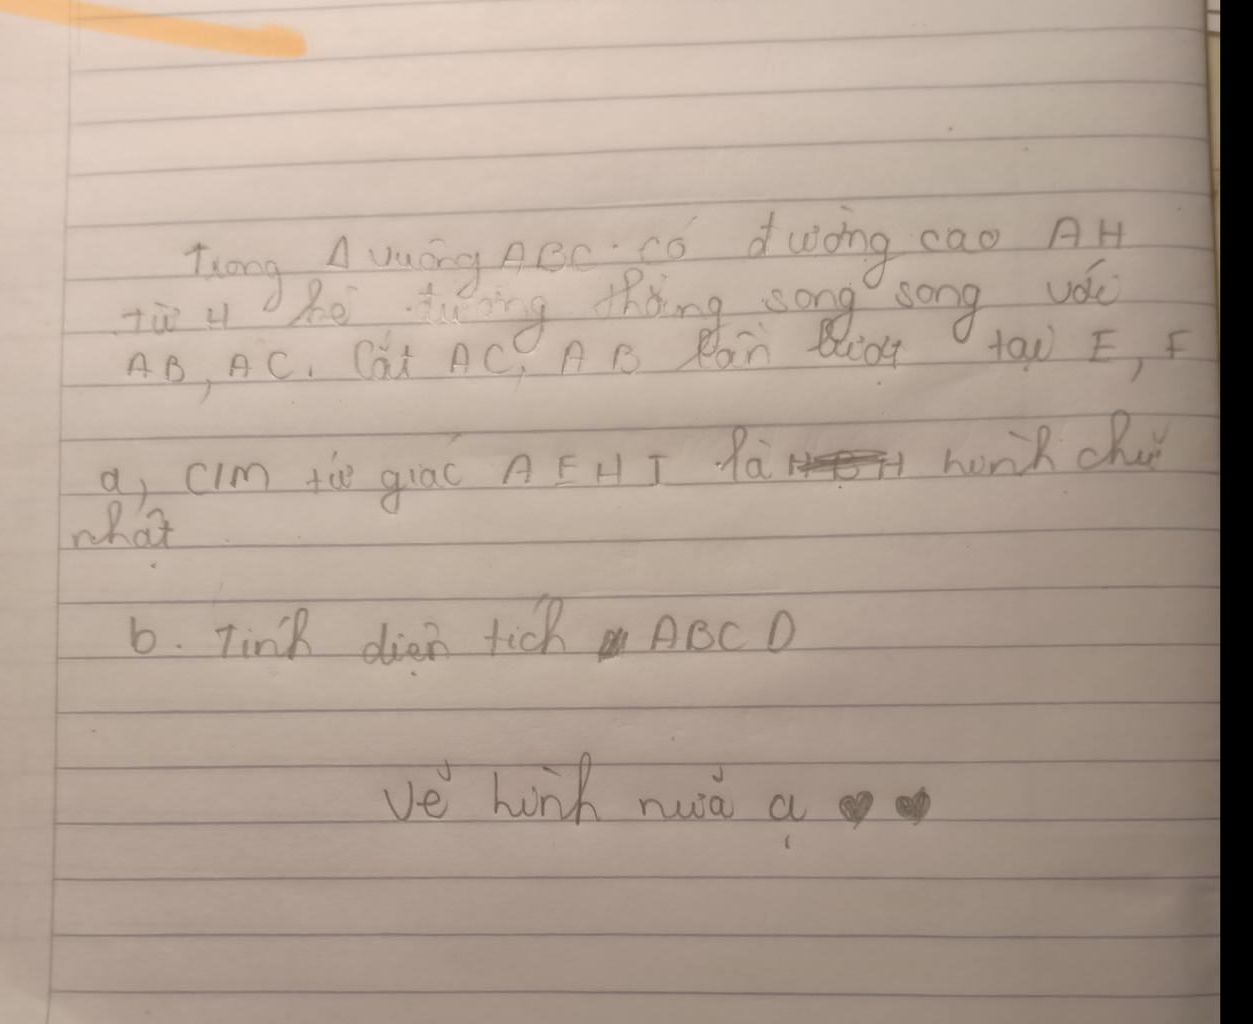 Trong Δ vuông ABC. có đường cao AH
từ H kẻ đường thẳng song song với
AB, AC. Cắt AC, AB lần lượt tại E, F
a, C/M tứ giác AEHI là hình chữ
nhật
b. Tính diện tích ABCD
Vẽ hình nữa ạ ♥ ♥